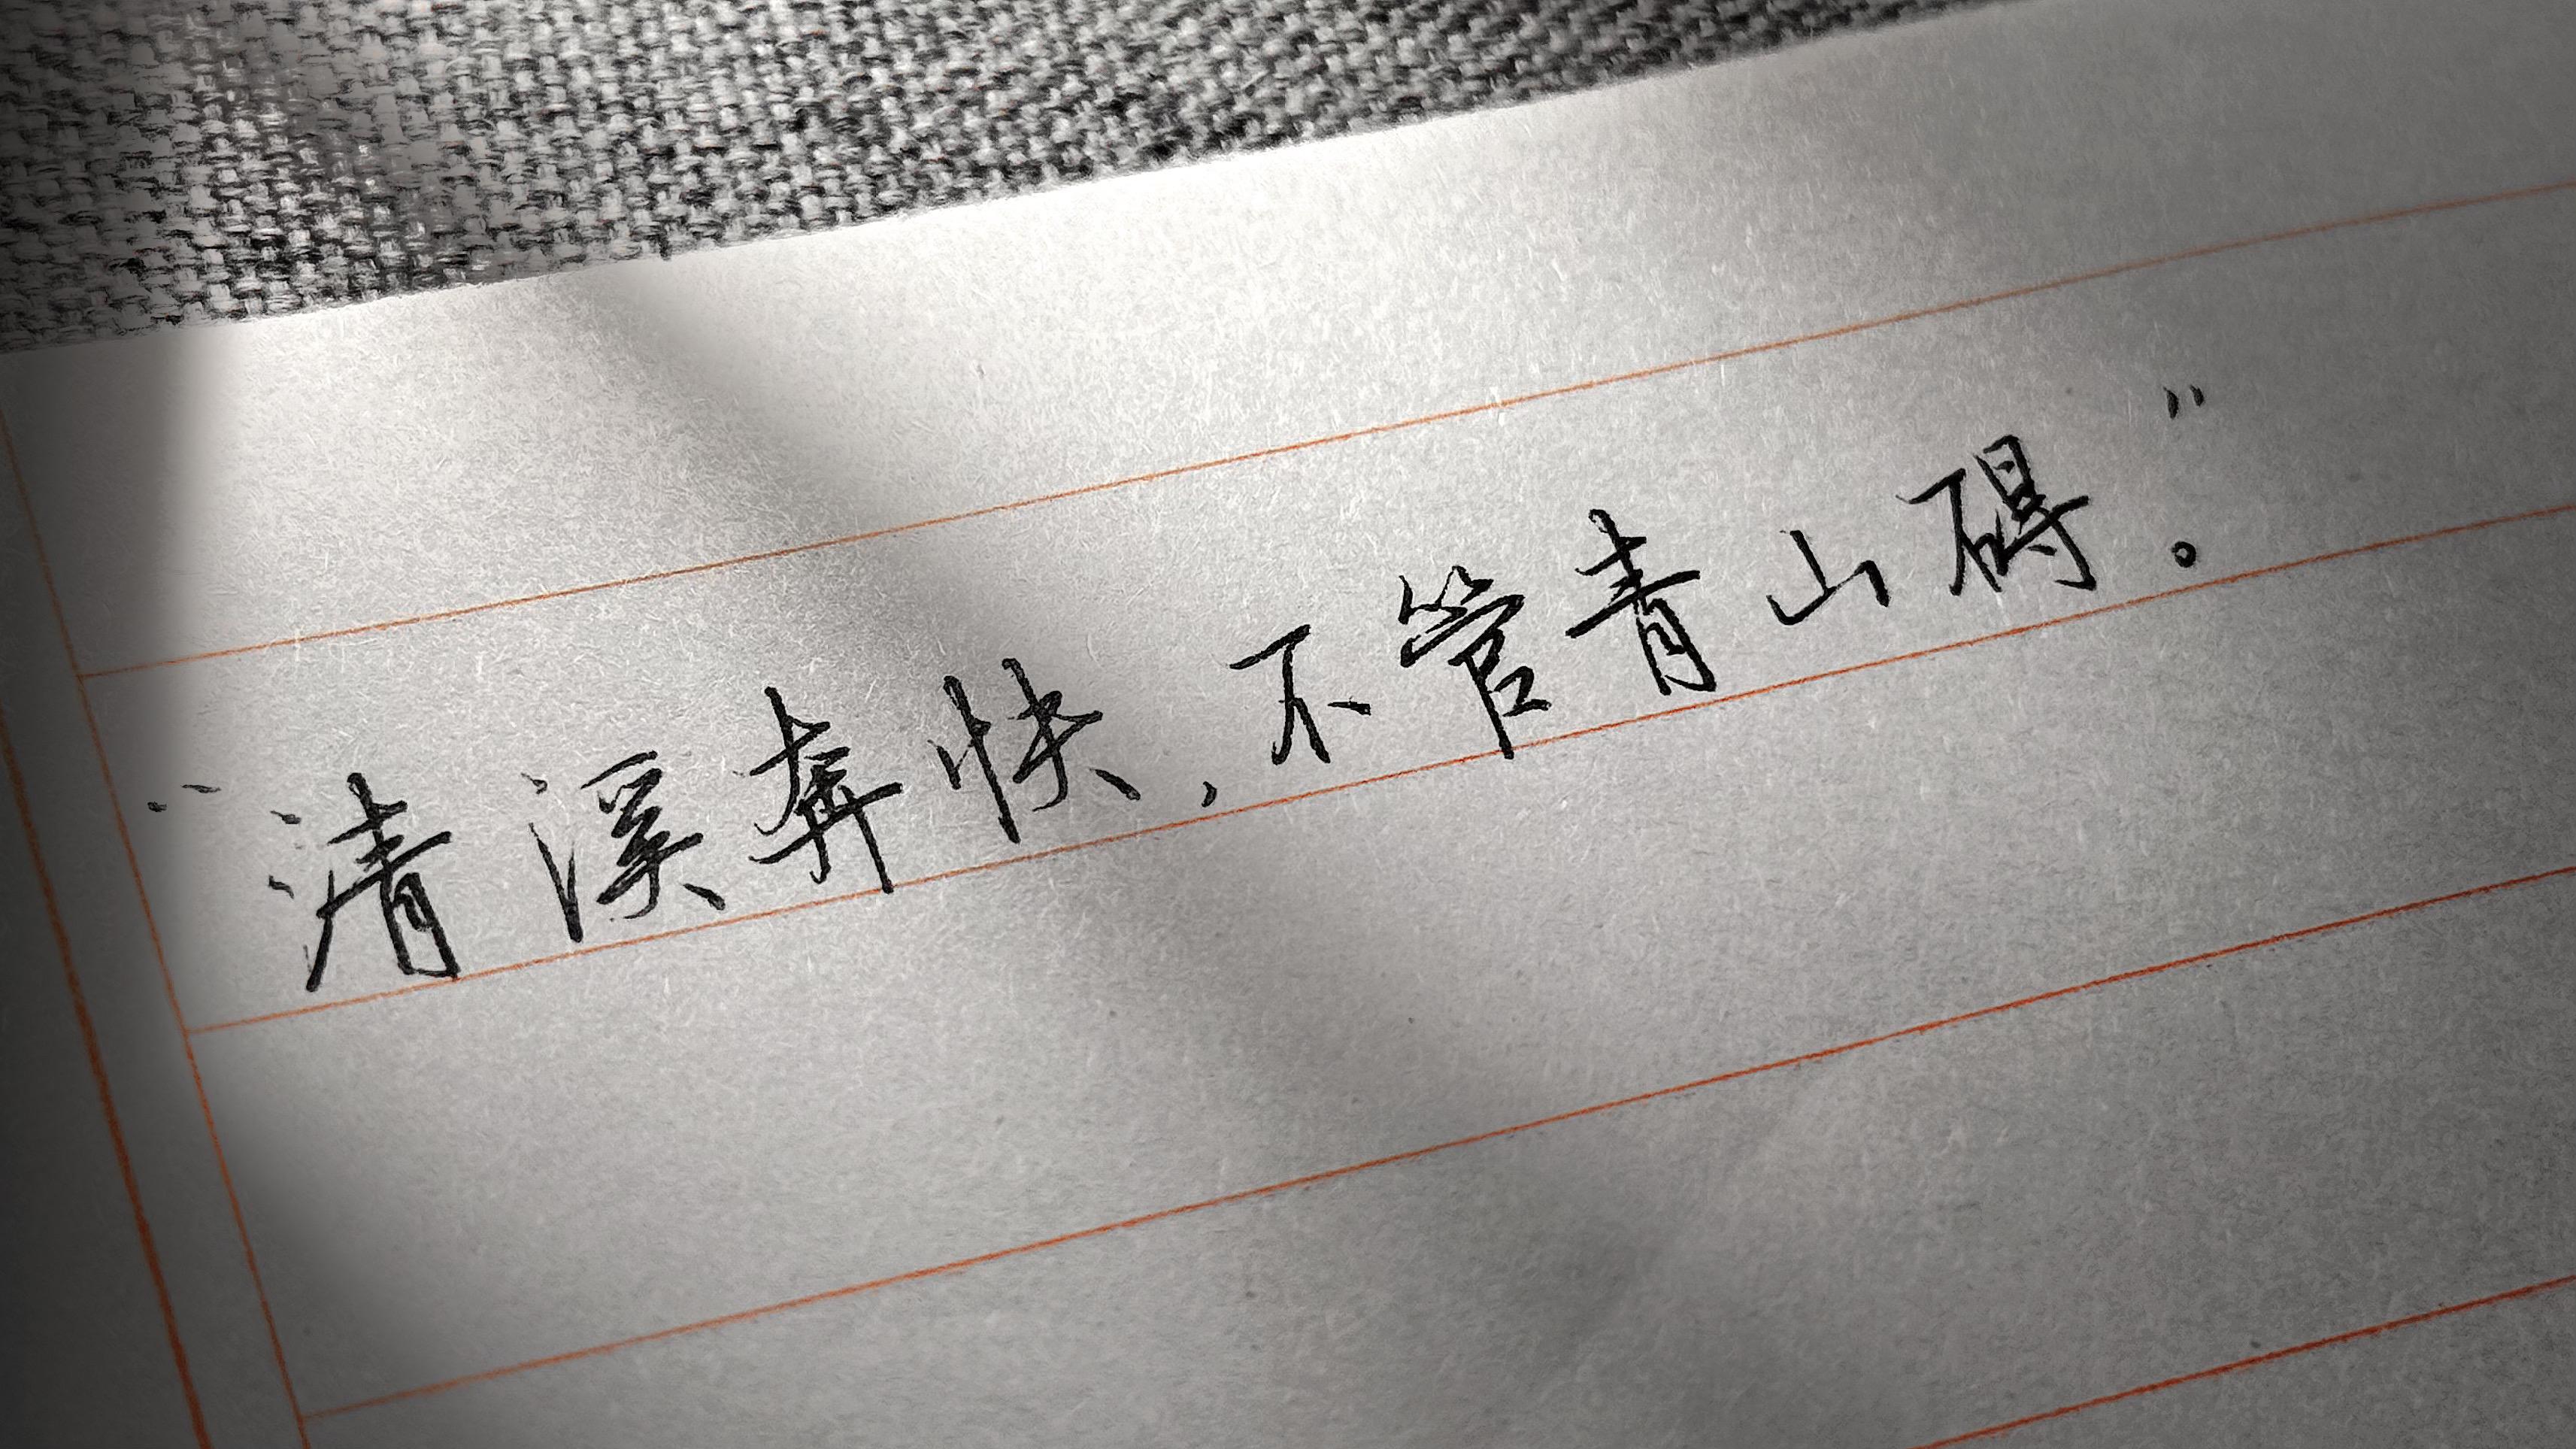 “清溪奔快，不管青山碍。”